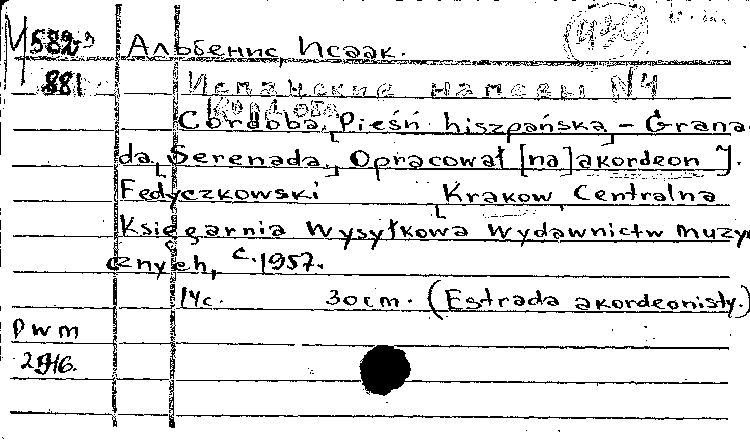 М 582
881
Альбенис, Исаак.
Испанские напевы N4
Кордова
Córdoba. Pieśń hiszpańska, - Grana-
da, Serenada. Opracował [na] akordeon J.
Fedyczkowski Kraków, Centralna
Księgarnia Wysyłkowa Wydawnictw Muzy-
cznych, c. 1957.
14 c. 30 cm. (Estrada akordeonisty.)
PWM